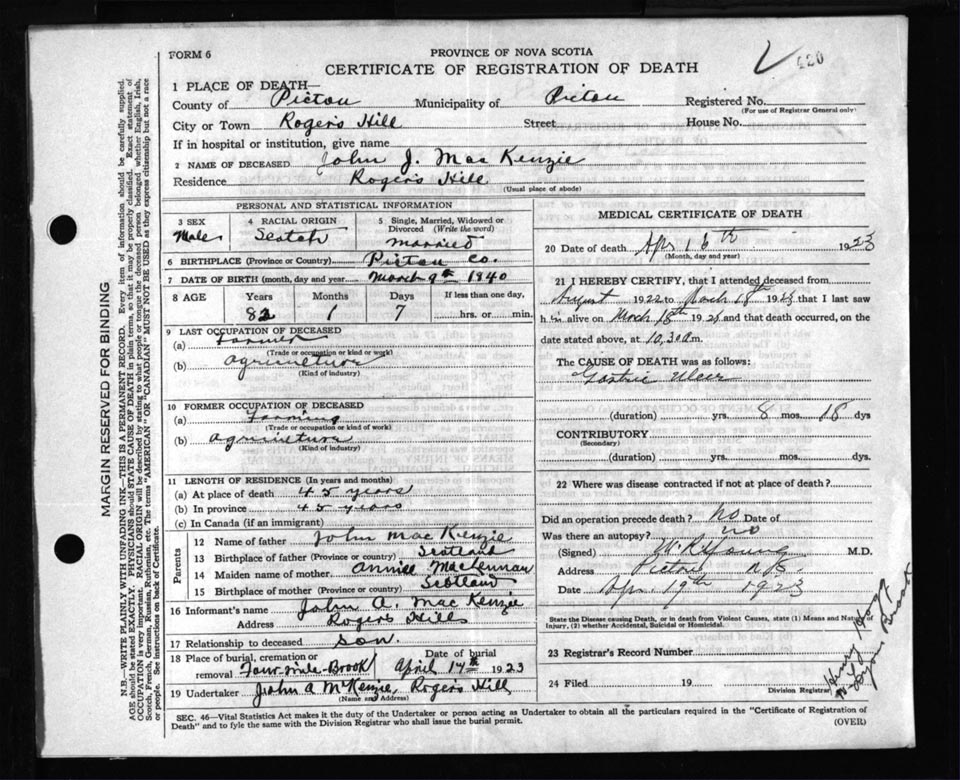 FORM 6
PROVINCE OF NOVA SCOTIA
CERTIFICATE OF REGISTRATION OF DEATH
420
1 PLACE OF DEATH—
County of Pictou Municipality of Pictou Registered No.
(For use of Registrar General only)
City or Town Rogers Hill Street House No.
If in hospital or institution, give name
2 NAME OF DECEASED John J. MacKenzie
Residence Rogers Hill
(Usual place of abode)
PERSONAL AND STATISTICAL INFORMATION
3 SEX
Male
4 RACIAL ORIGIN
Scotch
5 Single, Married, Widowed or Divorced (Write the word)
Married
6 BIRTHPLACE (Province or Country) Pictou Co.
7 DATE OF BIRTH (month, day and year) March 9th 1840
8 AGE Years Months Days If less than one day,
82 1 7 hrs. or min.
9 LAST OCCUPATION OF DECEASED
(a) Farmer
(Trade or occupation or kind or work)
(b) Agriculture
(Kind of industry)
10 FORMER OCCUPATION OF DECEASED
(a) Farming
(Trade or occupation or kind of work)
(b) Agriculture
(Kind of industry)
11 LENGTH OF RESIDENCE (In years and months)
(a) At place of death 45 years
(b) In province 45 years
(c) In Canada (if an immigrant)
Parents
12 Name of father John MacKenzie
13 Birthplace of father (Province or country) Scotland
14 Maiden name of mother Annie MacLennan
15 Birthplace of mother (Province or country) Scotland
16 Informant's name John A. MacKenzie
Address Rogers Hills
17 Relationship to deceased son.
18 Place of burial, cremation or removal Four mile Brook Date of burial April 17th 1923
19 Undertaker John A McKenzie, Rogers Hill
(Name and Address)
MEDICAL CERTIFICATE OF DEATH
20 Date of death Apr 16th 1923
(Month, day and year)
21 I HEREBY CERTIFY, that I attended deceased from
August 1922 to March 18th 1923 that I last saw
him alive on March 18th 1923 and that death occurred, on the
date stated above, at 10.30 a m.
The CAUSE OF DEATH was as follows:
Gastric Ulcer
(duration) yrs. 8 mos. 18 dys
CONTRIBUTORY
(Secondary)
(duration) yrs. mos. dys.
22 Where was disease contracted if not at place of death?
Did an operation precede death? no Date of
Was there an autopsy? no
(Signed) Young M.D.
Address Pictou N.S.
Date Apr. 19th 1923
State the Disease causing Death, or in death from Violent Causes, state (1) Means and Nature of Injury, (2) whether Accidental, Suicidal or Homicidal.
23 Registrar's Record Number
24 Filed 19
Division Registrar
Henry Hogg
Lyons Brook
SEC. 46—Vital Statistics Act makes it the duty of the Undertaker or person acting as Undertaker to obtain all the particulars required in the "Certificate of Registration of
Death" and to fyle the same with the Division Registrar who shall issue the burial permit.
(OVER)
MARGIN RESERVED FOR BINDING
N.B.—WRITE PLAINLY WITH UNFADING INK—THIS IS A PERMANENT RECORD. Every item of information should be carefully supplied.
AGE should be stated EXACTLY. PHYSICIANS should STATE CAUSE OF DEATH in plain terms, so that it may be properly classified. Exact statement of
OCCUPATION is very important. RACIAL ORIGIN will be described by stating to what people or tongue the deceased person belonged whether English, Irish,
Scotch, French, German, Russian, Ruthenian, etc. The terms "AMERICAN" OR "CANADIAN" MUST NOT BE USED as they express citizenship but not a race
or people. See instructions on back of Certificate.